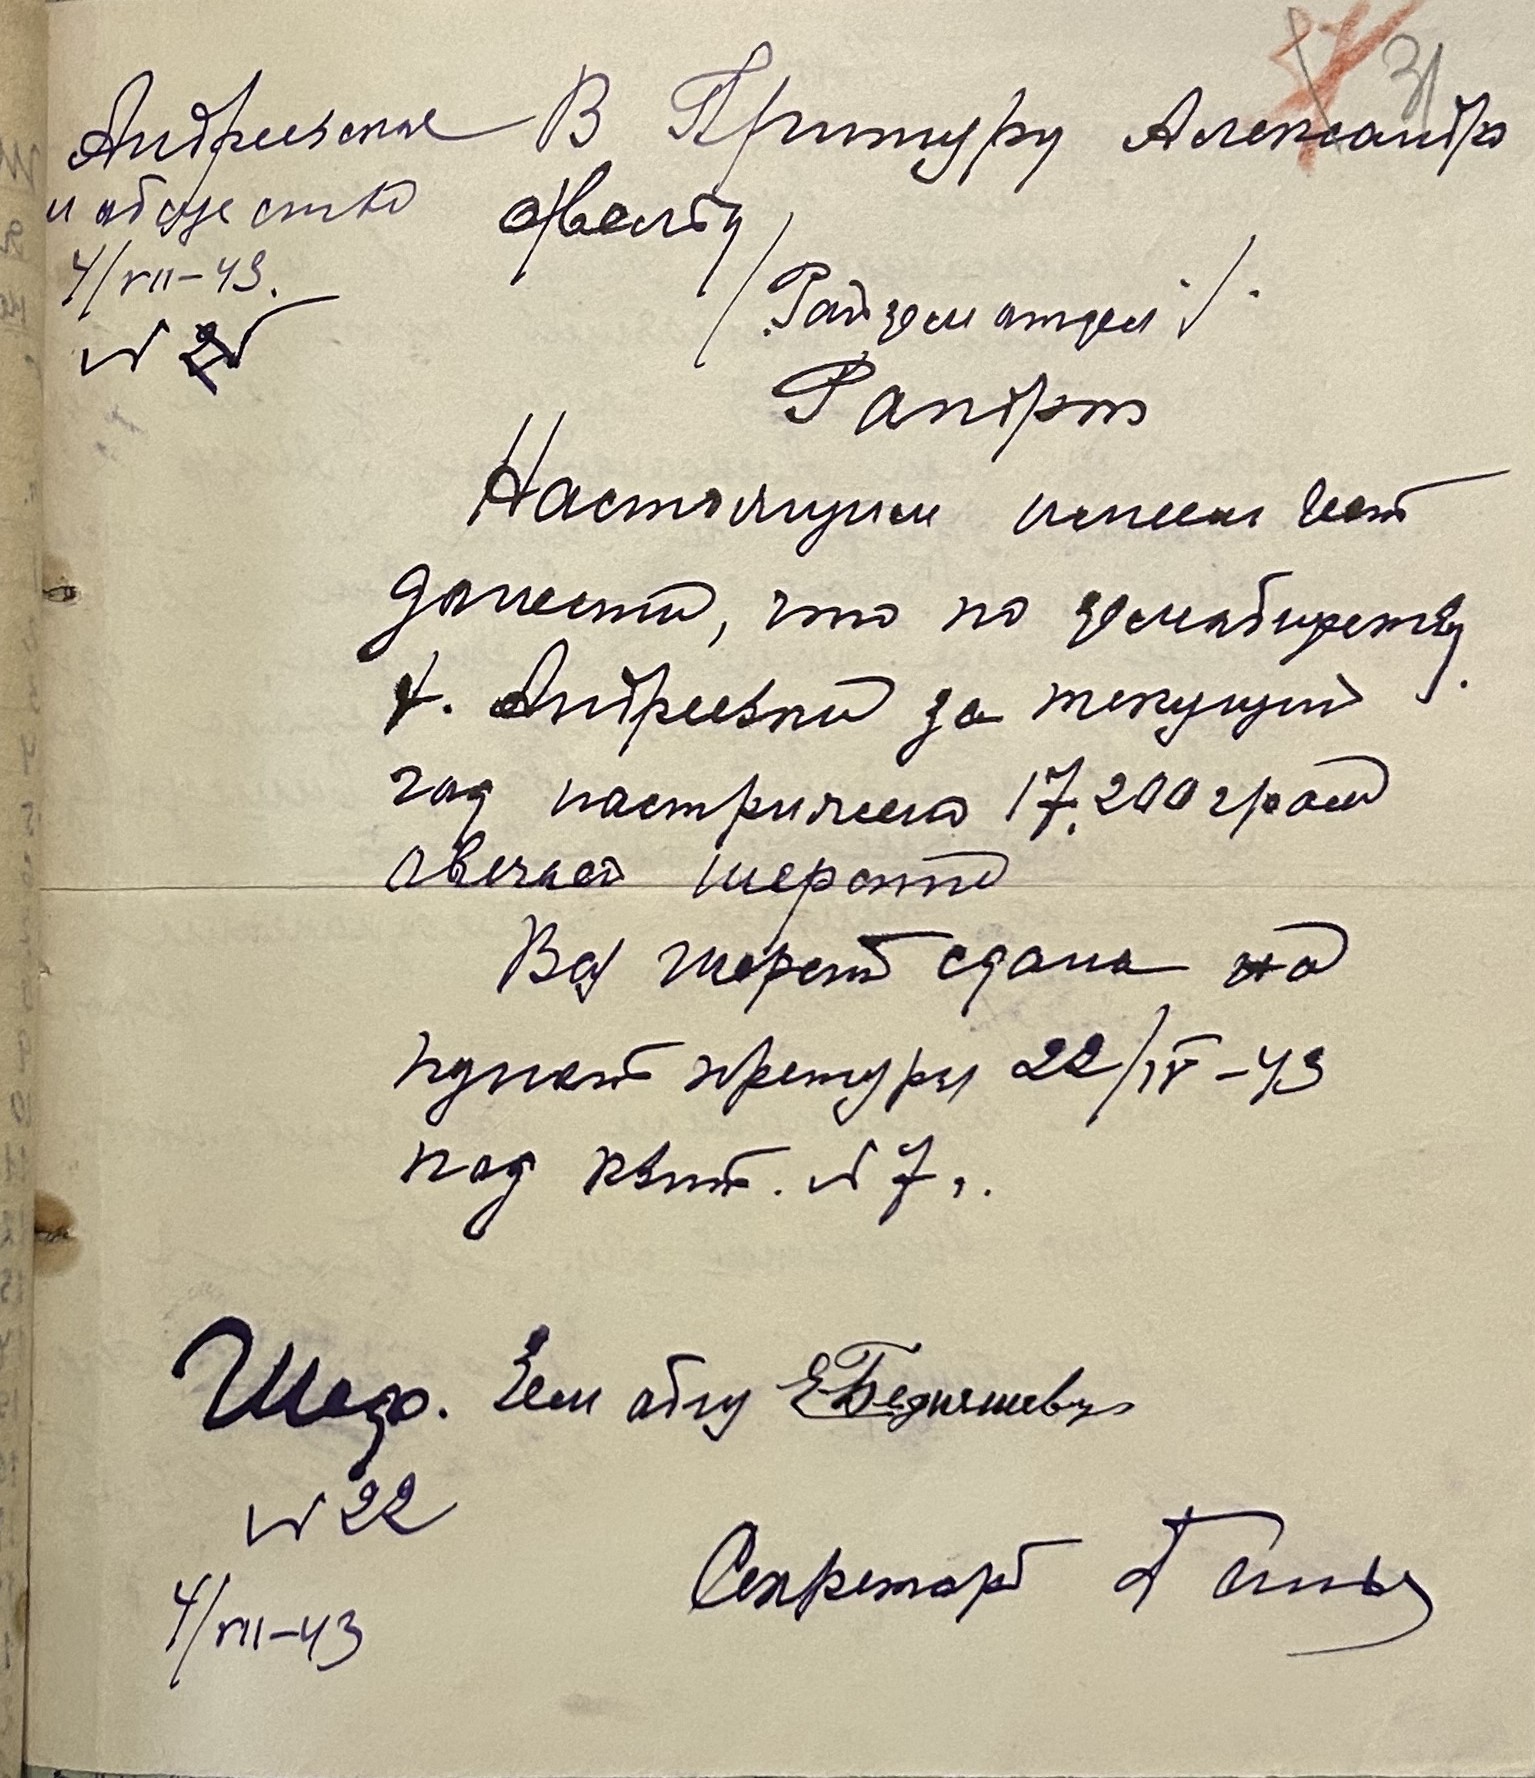 31
Андреевское
и общество
4/VII-43.
№
В Притуру Александро
Райземотдел
Рапорт
Настоящим имеем чест
донести, что по земобществу
х. Андреевки за текущий
год настрижено 17,200 грам
овечьей шерсти
Вся шерсть сдана на
пункт претуры 22/IV-43
под квит. № 7.
Шеф. Зем общ Е Бедняшевъ
№ 22
4/VII-43
Секретарь